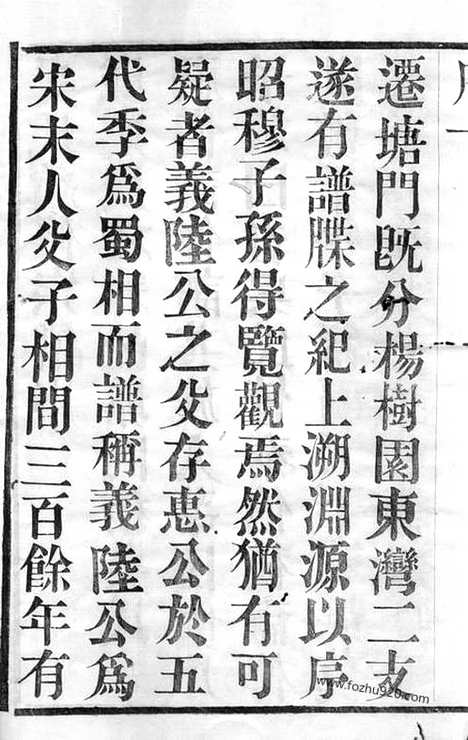 遷塘門旣分楊樹園東灣二支
遂有譜牒之紀上溯淵源以序
昭穆子孫得覽觀焉然猶有可
疑者義陸公之父存惠公於五
代季爲蜀相而譜稱義陸公爲
宋末人父子相問三百餘年有
www.fozhu920.com